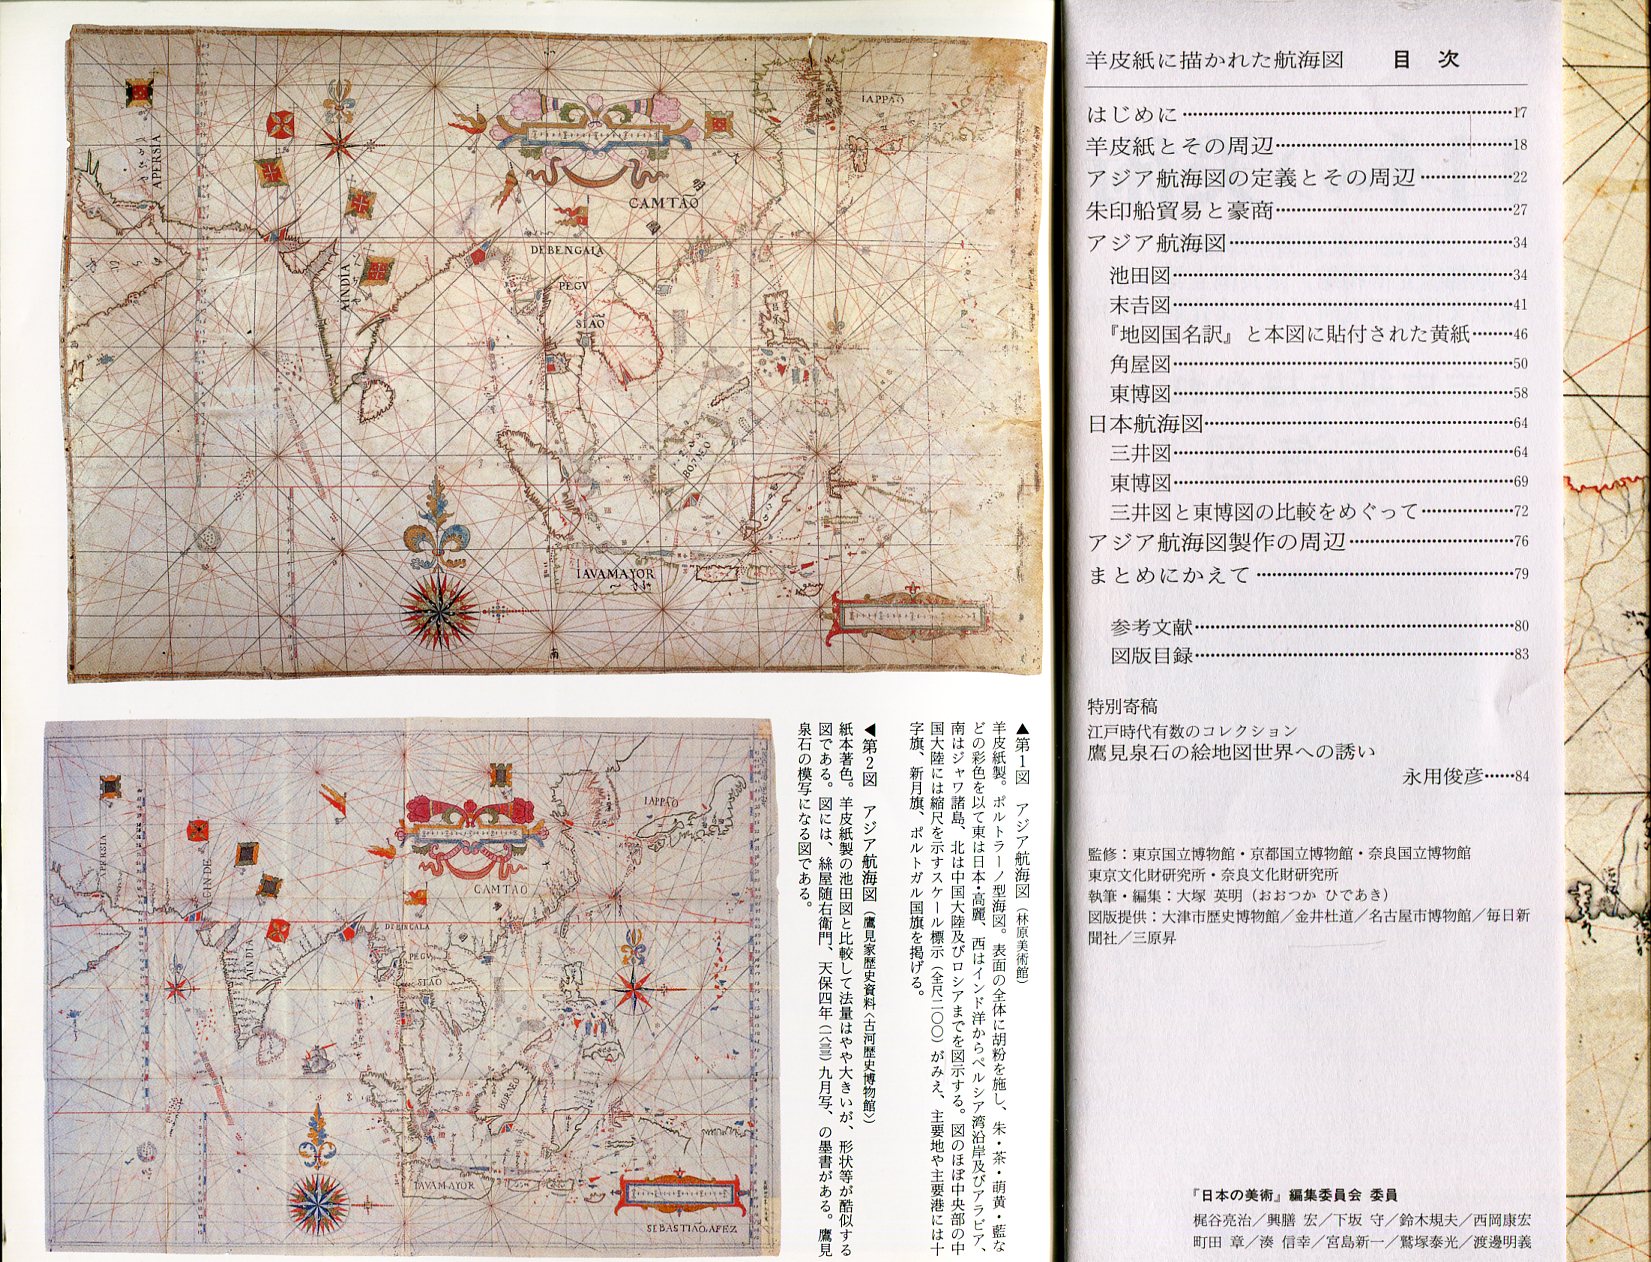 IAPPAÕ
APERSIA
CAMTAÕ
DEBENGALA
AINDIA
PEGV
SIAÕ
BORNEO
IAVAMAYOR
南
IAPPAÕ
PERSIA
CINDE
CAMTAO
DEBENGALA
AINDIA
PEGV
SIAO
BORNEO
IAVAMAYOR
▲第1図　アジア航海図（林原美術館）
羊皮紙製。ポルトラーノ型海図。表面の全体に胡粉を施し、朱・茶・萌黄・藍な
どの彩色を以て東は日本・高麗、西はインド洋からペルシア湾沿岸及びアラビア、
南はジャワ諸島、北は中国大陸及びロシアまでを図示する。図のほぼ中央部の中
国大陸には縮尺を示すスケール標示（全尺二〇〇）がみえ、主要地や主要港には十
字旗、新月旗、ポルトガル国旗を掲げる。
◀第2図　アジア航海図（鷹見家歴史資料〈古河歴史博物館〉）
紙本著色。羊皮紙製の池田図と比較して法量はやや大きいが、形状等が酷似する
図である。図には、絲屋随右衛門、天保四年（一八三三）九月写、の墨書がある。鷹見
泉石の模写になる図である。
羊皮紙に描かれた航海図　目　次
はじめに……17
羊皮紙とその周辺……18
アジア航海図の定義とその周辺……22
朱印船貿易と豪商……27
アジア航海図……34
池田図……34
末吉図……41
『地図国名訳』と本図に貼付された黄紙……46
角屋図……50
東博図……58
日本航海図……64
三井図……64
東博図……69
三井図と東博図の比較をめぐって……72
アジア航海図製作の周辺……76
まとめにかえて……79
参考文献……80
図版目録……83
特別寄稿
江戸時代有数のコレクション
鷹見泉石の絵地図世界への誘い
永用俊彦……84
監修：東京国立博物館・京都国立博物館・奈良国立博物館
東京文化財研究所・奈良文化財研究所
執筆・編集：大塚 英明（おおつか ひであき）
図版提供：大津市歴史博物館／金井杜道／名古屋市博物館／毎日新
聞社／三原昇
『日本の美術』編集委員会 委員
梶谷亮治／興膳 宏／下坂 守／鈴木規夫／西岡康宏
町田 章／湊 信幸／宮島新一／鷲塚泰光／渡邊明義